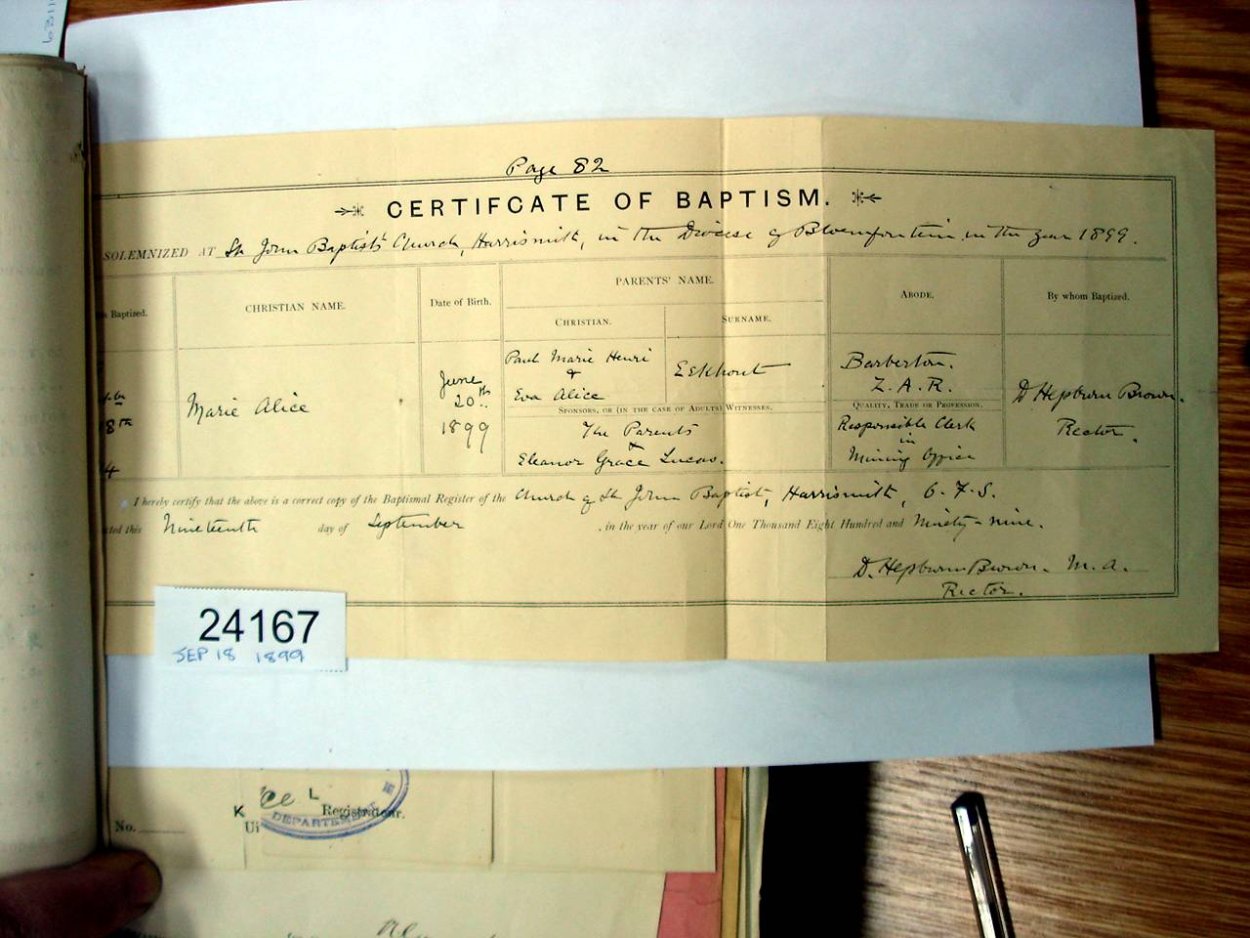 Page 82
CERTIFCATE OF BAPTISM.
SOLEMNIZED AT St John Baptist's Church, Harrismith, in the Diocese of Bloemfontein in the year 1899.
Baptized.
CHRISTIAN NAME.
Date of Birth.
PARENTS' NAME.
ABODE.
By whom Baptized.
CHRISTIAN.
SURNAME.
8th
4
Marie Alice
June
20th
1899
Paul Marie Henri
&
Eva Alice
Eekhout
SPONSORS, OR (IN THE CASE OF ADULTS) WITNESSES.
The Parents
&
Eleanor Grace Lucas.
Barberton.
Z.A.R.
QUALITY, TRADE OR PROFESSION.
Responsible Clerk
in
Mining Office
D Hepburn Brown.
Rector.
I hereby certify that the above is a correct copy of the Baptismal Register of the Church of St John Baptist, Harrismith, O.F.S.
this Nineteenth day of September, in the year of our Lord One Thousand Eight Hundred and Ninety-nine.
D. Hepburn Brown. M.A.
Rector.
24167
SEP 18 1899
L
K
Registrateur.
DEPARTEMENT
No.